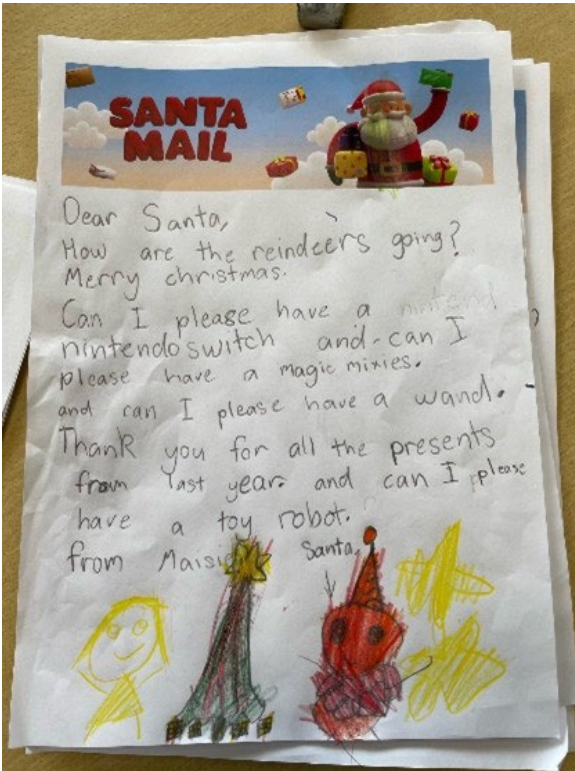 SANTA
MAIL
Dear Santa,
How are the reindeers going?
Merry christmas.
Can I please have a nintend
nintendo switch and can I
please have a magic mixies.
and can I please have a wand.
Thank you for all the presents
from last year and can I please
have a toy robot.
from Maisie
Santa